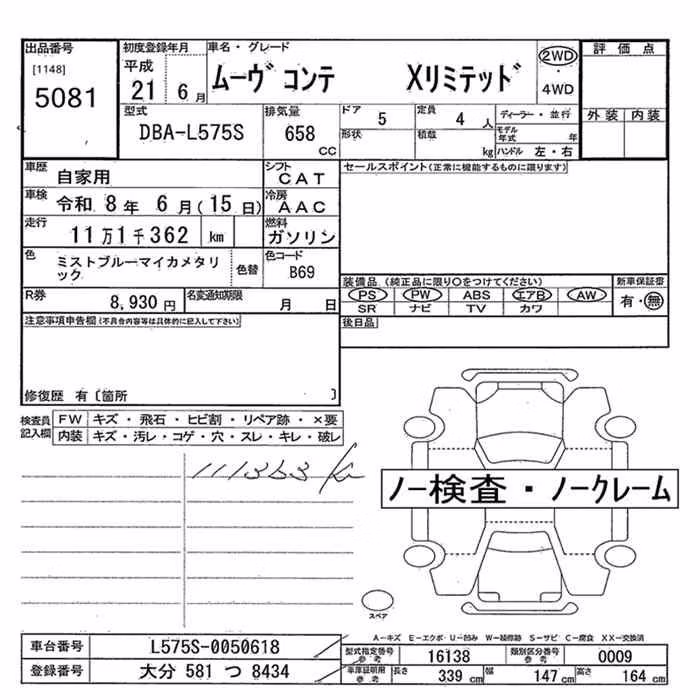 出品番号 初度登録年月 車名・グレード 評価点
[1148] 平成 ムーヴ コンテ Xリミテッド 2WD・4WD
5081 21 6月
外装 内装
型式 排気量 ドア 5 定員 4人 ディーラー・並行
DBA-L575S 658 CC 形状 積載 kg モデル年式 年
ハンドル 左・右
車歴 自家用 シフト CAT セールスポイント(正常に機能するものに限ります)
車検 令和 8年 6月(15日) 冷房 AAC
走行 11万1千362 km 燃料 ガソリン
色 ミストブルーマイカメタリック 色替 色コード B69
装備品 (純正品に限り○をつけてください) 新車保証書
PS PW ABS エアB AW 有・無
SR ナビ TV カワ
R券 8,930円 名変通知期限 月 日
後日品
注意事項申告欄(不具合内容等は具体的に記入して下さい)
修復歴 有〔箇所 〕
検査員記入欄 FW キズ・飛石・ヒビ割・リペア跡・×要
内装 キズ・汚レ・コゲ・穴・スレ・キレ・破レ
111363 km
ノー検査・ノークレーム
スペア
A-キズ E-エクボ U-凹み W-補修跡 S-サビ C-腐食 XX-交換済
車台番号 L575S-0050618 型式指定番号参考 16138 類別区分番号参考 0009
登録番号 大分 581 つ 8434 車庫証明用参考 長さ 339 cm 幅 147 cm 高さ 164 cm